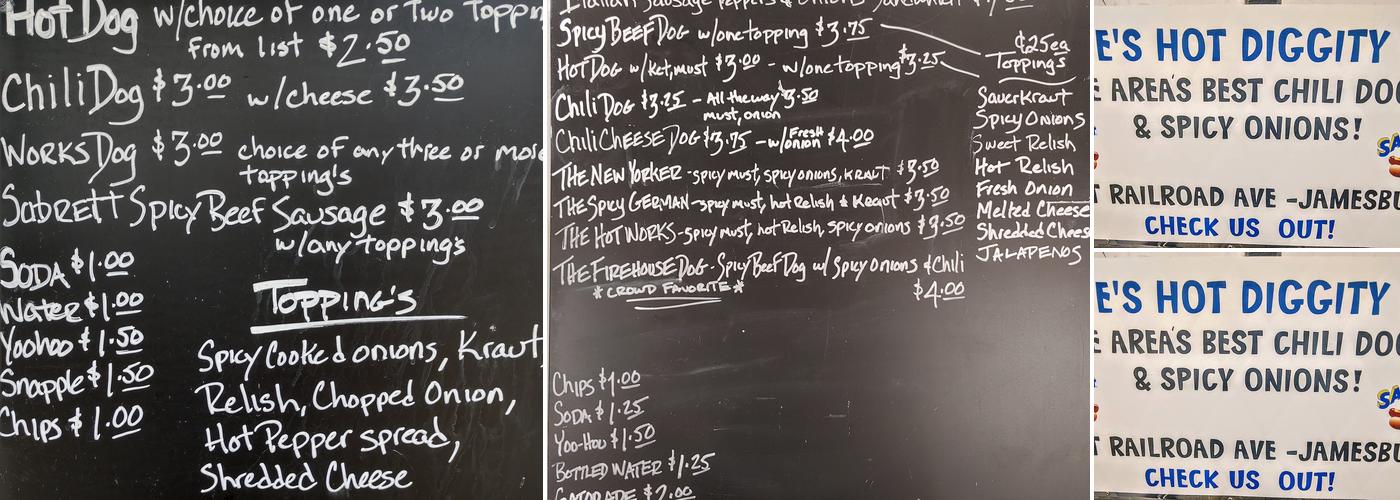 HotDog w/choice of one or Two
from list $2.50
ChiliDog $3.00 w/cheese $3.50
WORKS Dog $3.00 choice of any three or more
topping's
SabRETT Spicy Beef Sausage $3.00
w/any topping's
SODA $1.00
Water $1.00
Yoohoo $1.50
Snapple $1.50
Chips $1.00
TOPPING'S
Spicy Cooked onions, Kraut
Relish, Chopped Onion,
Hot Pepper spread,
Shredded Cheese
Italian Sausage Peppers & Onions
SPICY BEEF DOG w/one topping $3.75
HOT DOG w/ket, must $3.00 - w/one topping $3.25
CHILI DOG $3.25 - All the way $3.50
must, onion
CHILI CHEESE DOG $3.75 - w/Fresh onion $4.00
THE NEW YORKER - spicy must, spicy onions, KRAUT $3.50
THE SPICY GERMAN - spicy must, hot Relish & Kraut $3.50
THE HOT WORKS - spicy must, hot Relish, spicy onions $3.50
THE FIREHOUSE DOG - Spicy Beef Dog w/ Spicy onions & Chili
*CROWD FAVORITE* $4.00
¢25ea
Toppings
SauerKraut
Spicy Onions
Sweet Relish
Hot Relish
Fresh Onion
Melted Cheese
Shredded Cheese
JALAPENOS
Chips $1.00
SODA $1.25
Yoo-Hoo $1.50
BOTTLED WATER $1.25
GATORADE $2.00
E'S HOT DIGGITY
AREA'S BEST CHILI DO
& SPICY ONIONS!
RAILROAD AVE - JAMESBU
CHECK US OUT!
E'S HOT DIGGITY
AREA'S BEST CHILI DO
& SPICY ONIONS!
RAILROAD AVE - JAMESBU
CHECK US OUT!